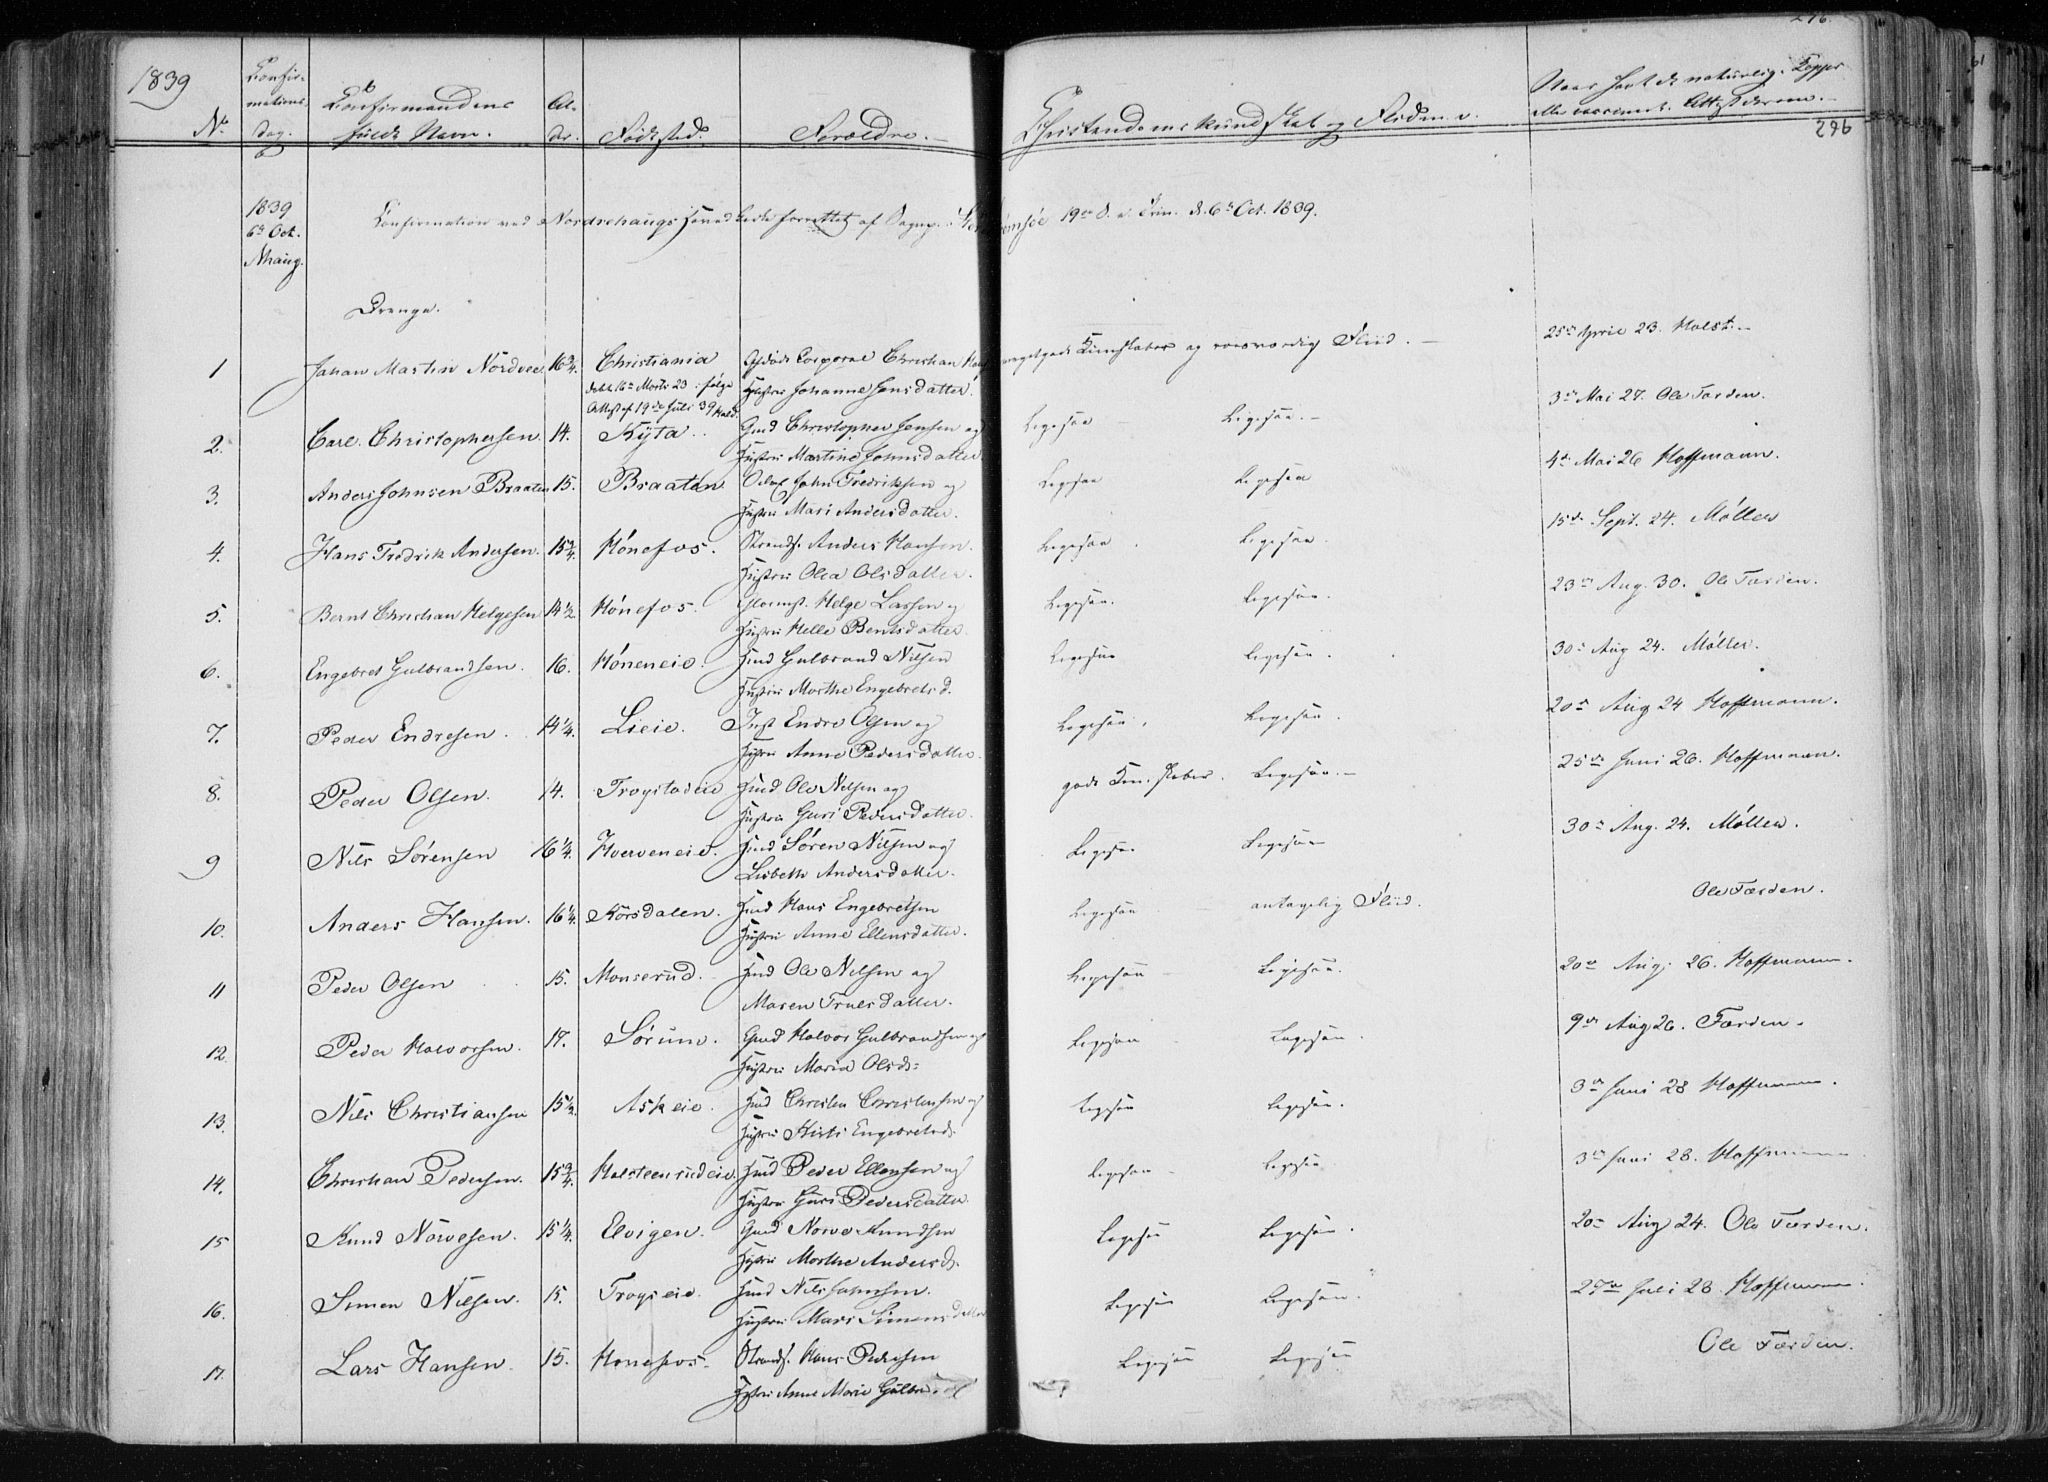 1839
296
Confir-
mations
Dag.
No
Confirmandens
fulde Navn.
Al-
der.
Fødested.
Forældre.
Christendomskundskab og Fliid m. v.
Naar havt de naturlige Kopper
eller vaccineret. Attest derom.
296
1839
6te Oct.
Nhaug.
Confirmation ved Nordrehougs Hovedkirke forrettet af Sognep. Steen 19de S. e. Trin. d. 6te Oct. 1839.
Drenge.
1 Johan Martin Nordvee 16 3/4. Christiania Afdøde Corporal Christian meget gode Kundskaber og roesværdig Fliid. 25de April 23. Holst.
døbt 16de Marts 23 ifølge Hustru Johanne Jensdatter.
Attest af 19de Juli 39
2. Carl Christophersen. 14. Kÿta Gmd Christopher Jensen og Ligesaa Ligesaa. 3de Mai 27. Ole Færden.
Hustru Martine Johnsdatter.
3. Anders Johnsen Braaten 15. Braaten John Fredriksen og Ligesaa Ligesaa 4de Mai 26 Hoffmann.
Hustru Mari Andersdatter.
4. Hans Fredrik Andersen. 15 3/4. Hønefos. Strands. Anders Hansen. Ligesaa. Ligesaa. 15de Sept. 24. Møller
Hustru Olea Olsdatter.
5. Bernt Christian Helgesen 14 1/2. Hønefos. Helge Larsen og Ligesaa. Ligesaa. 23de Aug. 30. Ole Færden.
Hustru Helle Berntsdatter.
6. Engebret Gulbrandsen. 16. Høneneie. Hmd Gulbrand Nilsen Ligesaa Ligesaa. 30te Aug 24. Møller.
Hustru Marthe Engebretsd.
7. Peder Endresen. 14 1/4. Lieie. Inst Endre Olsen og Ligesaa. Ligesaa. 20de Aug 24 Hoffmann.
Hustru Anne Pedersdatter.
8. Peder Olsen. 14. Trøgstadeie Hmd Ole Nilsen og gode Kundskaber. Ligesaa. 25de Juni 26. Hoffmann.
Hustru Guri Pedersdatter.
9 Nils Sørensen 16 1/4. Hverveneie. Hmd Søren Nilsen og Ligesaa Ligesaa 30te Aug. 24. Møller.
Lisbeth Andersdatter.
10. Anders Hansen. 16 1/4. Korsdalen. Hmd Hans Engebretsen Ligesaa antagelig Fliid. Ole Færden.
Hustru Anne Ellensdatter.
11 Peder Olsen 15. Monserud. Hmd Ole Nilsen og Ligesaa Ligesaa. 20de Aug. 26. Hoffmann.
Maren Truelsdatter.
12. Peder Halvorsen. 17. Sørum. Gmd Halvor Gulbrandsen og Ligesaa Ligesaa. 9de Aug 26. Færden.
Hustru Maria Olsd:
13. Nils Christiansen 15 1/2. Askeie. Hmd Christen Christensen og Ligesaa Ligesaa. 3de Juni 28 Hoffmann.
Hustru Kirsti Engebretsd.
14. Christian Pedersen. 15 3/4. Halsteenrudeie. Hmd Peder Ellensen og Ligesaa Ligesaa 3de Juni 28. Hoffmann.
Hustru Guri Pedersdatter.
15 Knud Narvesen. 15 1/4. Elvigen. Gmd Narve Knudsen Ligesaa Ligesaa. 20de Aug 24. Ole Færden.
Hustru Marthe Andersd.
16. Simen Nilsen. 15. Trøgseie. Hmd Nils Johnsen. Ligesaa Ligesaa. 27de Juli 28. Hoffmann.
Hustru Mari Simensdatter
17. Lars Hansen. 15. Hønefos. Strands. Hans Pedersen Ligesaa Ligesaa Ole Færden.
Hustru Anne Marie